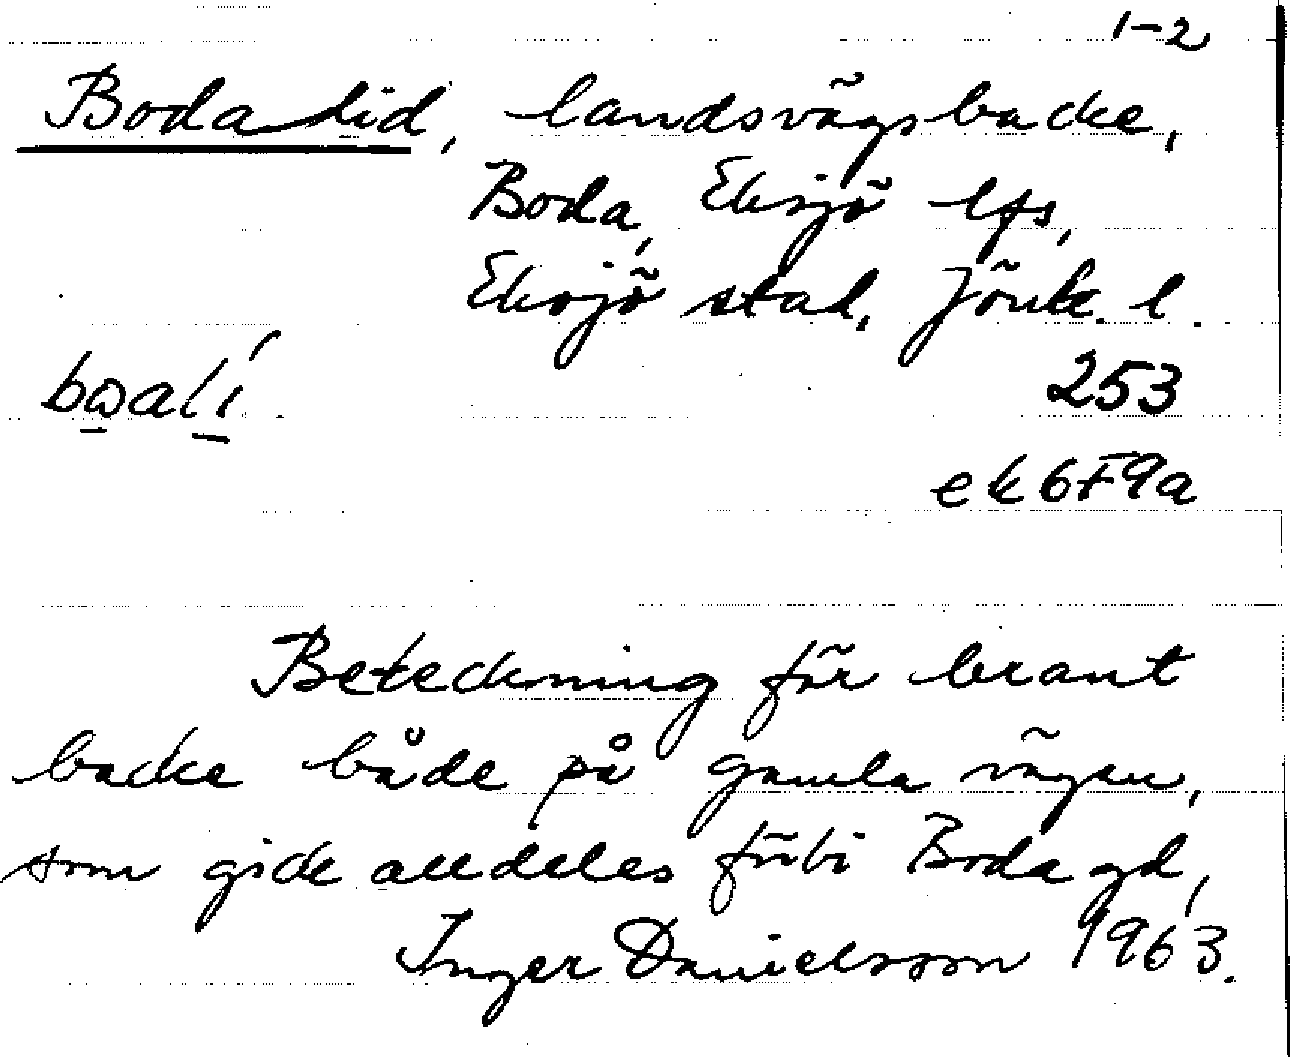 1-2
Boda lid, landsvägsbacke,
Boda, Eksjö lfs,
Eksjö stad, Jönk. l.
253
ek 6F9a
Beteckning för brant
backe både på gamla vägen,
som gick alldeles förbi Boda gd,
Inger Danielsson 1963.